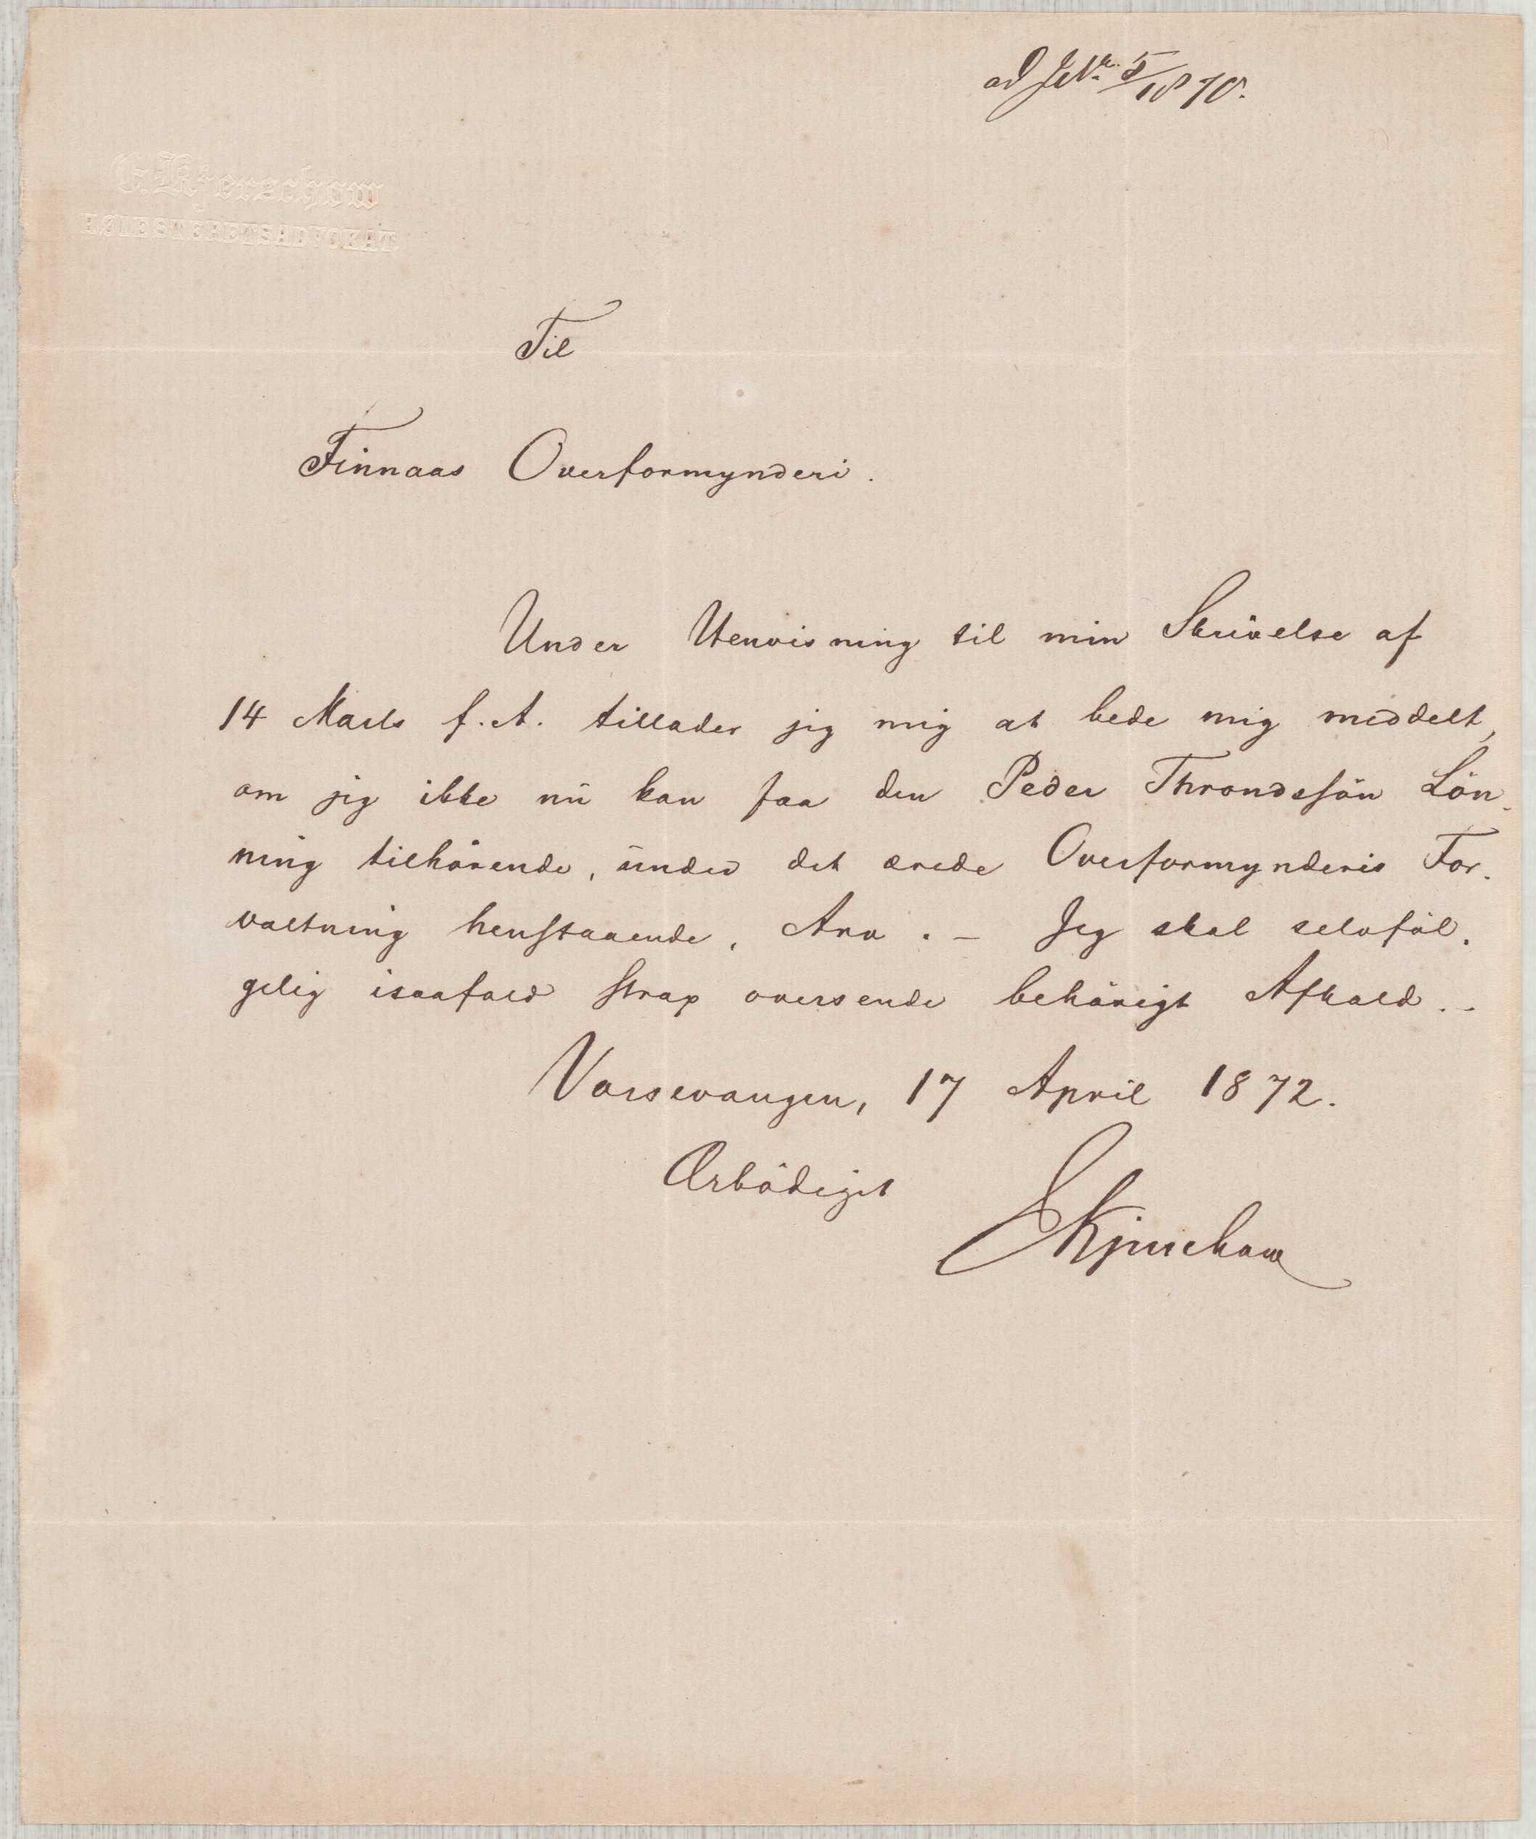 ad J.Nr. 5/1870.
C. Kjerschow
HØIESTERETSADVOKAT
Til
Finnaas Overformynderi.
Under Henvisning til min Skrivelse af
14 Marts f. A. tillader jeg mig at bede mig meddelt,
om jeg ikke nu kan faa den Peder Throndssön Lön-
ning tilhörende, under det ærede Overformynderis For-
valtning henstaaende, Arv. — Jeg skal selvföl-
gelig isaafald strax oversende behörigt Afkald. -
Vossevangen, 17 April 1872.
Ærbödigst
CKjerschow